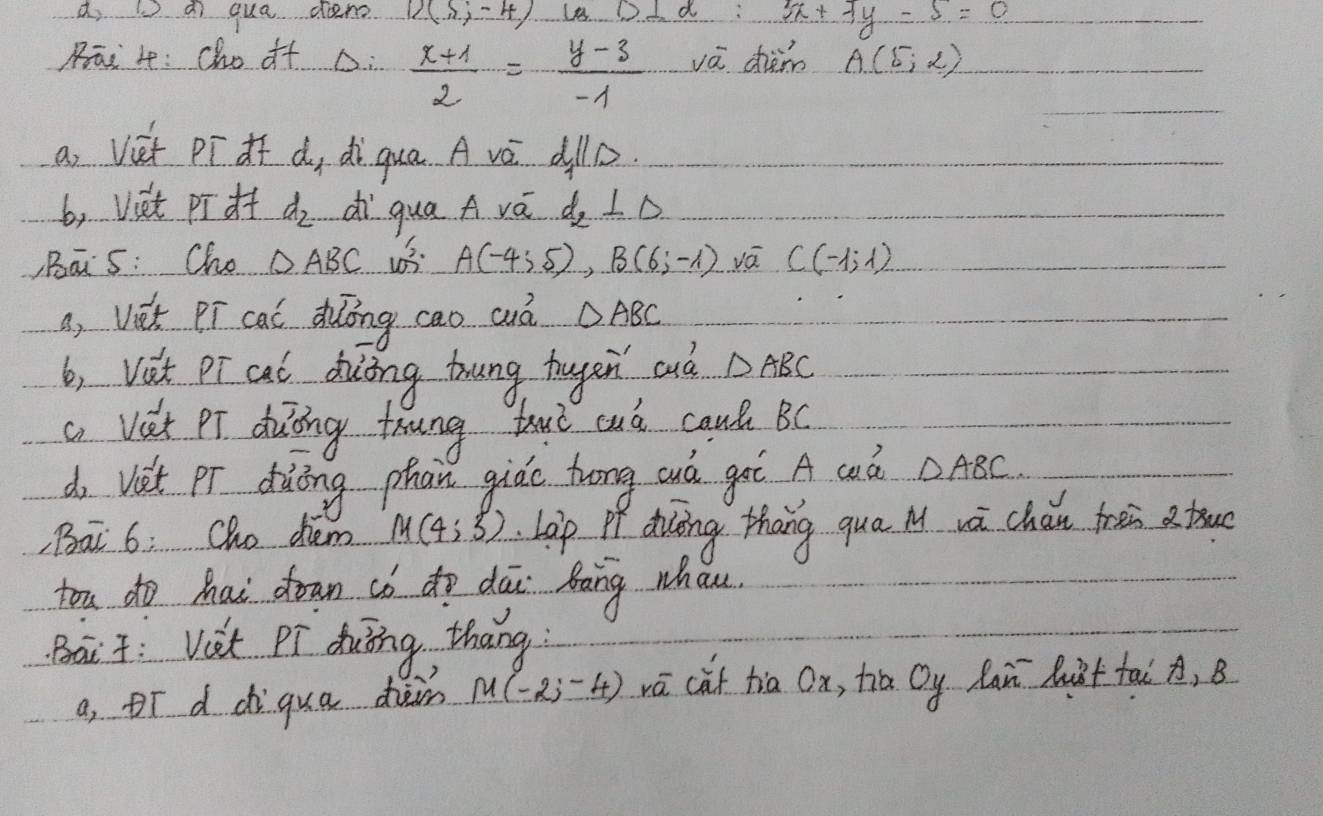 d, Δ đi qua điểm D(5;-4) và Δ⊥d : 3x+7y-5=0
Bài 4: Cho đt Δ: x+1/2 = y-3/-1 và điểm A(5;2)
a, Viết PT đt d₁ đi qua A và d₁//Δ.
b, Viết PT đt d₂ đi qua A và d₂ ⊥ Δ
Bài 5: Cho Δ ABC với A(-4;5), B(6;-1) và C(-1;1)
a, Viết PT các đường cao của ΔABC
b, Viết PT các đường trung tuyến của ΔABC
c, Viết PT đường trung trực của cạnh BC
d, Viết PT đường phân giác trong của góc A của ΔABC.
Bài 6: Cho điểm M(4;3). Lập PT đường thẳng qua M và chắn trên 2 trục
tọa độ hai đoạn có độ dài bằng nhau.
Bài 7: Viết PT đường thẳng:
a, ĐT d đi qua điểm M(-2;-4) và cắt tia Ox, tia Oy lần lượt tại A, B